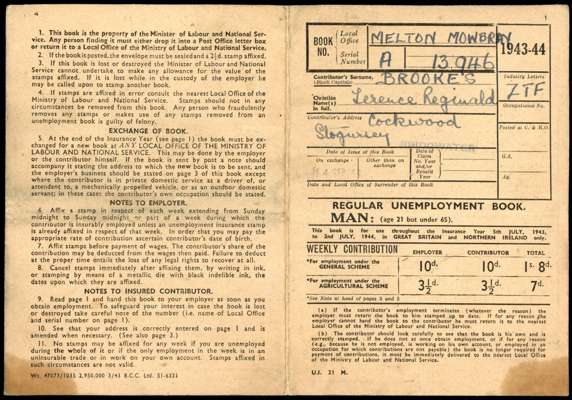 1. This book is the property of the Minister of Labour and National Ser-
vice. Any person finding it must either drop it into a Post Office letter box
or return it to a Local Office of the Ministry of Labour and National Service.
2. If the book is posted, the envelope must be sealed and a 2½d. stamp affixed.
3. If this book is lost or destroyed the Minister of Labour and National
Service cannot undertake to make any allowance for the value of the
stamps affixed. If it is lost while in the custody of the employer he
may be called upon to stamp another book.
4. If stamps are affixed in error consult the nearest Local Office of the
Ministry of Labour and National Service. Stamps should not in any
circumstances be removed from this book. Any person who fraudulently
removes any stamps or makes use of any stamps removed from an
unemployment book is guilty of felony.
EXCHANGE OF BOOK.
5. At the end of the Insurance Year (see page 1) the book must be ex-
changed for a new book at ANY LOCAL OFFICE OF THE MINISTRY OF
LABOUR AND NATIONAL SERVICE. This may be done by the employer
or the contributor himself. If the book is sent by post a note should
accompany it stating the address to which the new book is to be sent, and
the employer's business should be stated on page 3 of this book except
where the contributor is in private domestic service as a driver of, or
attendant to, a mechanically propelled vehicle, or as an outdoor domestic
servant; in these cases the contributor's own occupation should be stated.
NOTES TO EMPLOYER.
6. Affix a stamp in respect of each week, extending from Sunday
midnight to Sunday midnight or part of a week during which the
contributor is insurably employed unless an unemployment insurance stamp
is already affixed in respect of that week. In order that you may pay the
appropriate rate of contribution ascertain contributor's date of birth.
7. Affix stamps before payment of wages. The contributor's share of the
contribution may be deducted from the wages then paid. Failure to deduct
at the proper time entails the loss of any legal rights to recover at all.
8. Cancel stamps immediately after affixing them, by writing in ink,
or stamping by means of a metallic die with black indelible ink, the
dates upon which they are affixed.
NOTES TO INSURED CONTRIBUTOR.
9. Read page 1 and hand this book to your employer as soon as you
obtain employment. To safeguard your interest in case the book is lost
or destroyed take careful note of the number (i.e. name of Local Office
and serial number on page 1).
10. See that your address is correctly entered on page 1 and is
amended when necessary. (See also page 3.)
11. No stamps may be affixed for any week if you are unemployed
during the whole of it or if the only employment in the week is in an
uninsurable trade or in work on your own account. Stamps affixed in
such circumstances are not valid.
1
BOOK NO.
Local Office
MELTON MOWBRAY
Serial Number
A 13,946
1943-44
Contributor's Surname,
(Block Capitals)
BROOKE'S
Industry Letters
ZTF
Christian Name(s) in full.
Terence Reginald
Occupational No.
Contributor's Address
Cockwood
Stogursey
BRIDGWATER
Posted at C. & R.O.
Date of Issue of this Book
On exchange
Other than on exchange
Date of Claim
U.I.
Date and Local Office of Surrender of this Book
REGULAR UNEMPLOYMENT BOOK.
MAN: (age 21 but under 65).
This book is for use throughout the Insurance Year 5th JULY, 1943,
to 2nd JULY, 1944, in GREAT BRITAIN and NORTHERN IRELAND only.
WEEKLY CONTRIBUTION EMPLOYER CONTRIBUTOR TOTAL
*For employment under the GENERAL SCHEME 10d. 10d. 1s. 8d.
*For employment under the AGRICULTURAL SCHEME 3½d. 3½d. 7d.
*See Note at head of pages 2 and 3
(a) If the contributor's employment terminates (whatever the reason) the
employer must return the book to him stamped up to date. If for any reason the
employer cannot hand the book to the contributor he must return it to the nearest
Local Office of the Ministry of Labour and National Service.
(b) The contributor should look carefully to see that the book is his own and is
correctly stamped. If he does not at once obtain employment, or if for any reason
(e.g., because he is not employed, is working on his own account, or employed in an
occupation for which contributions are not payable) the book is no longer required for
payment of contributions, it must be immediately delivered to the nearest Local Office
of the Ministry of Labour and National Service.
U.I. 21 M.